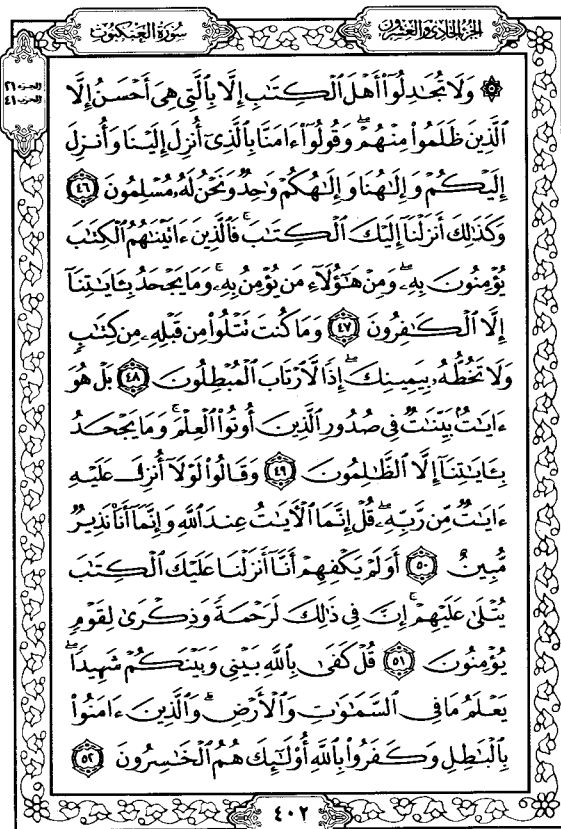 الجزء الحادي والعشرون
سُورَةُ الْعَنْكَبُوتِ
الجزء ٢١
الحزب ٤١
۞ وَلَا تُجَٰدِلُوٓا۟ أَهْلَ ٱلْكِتَٰبِ إِلَّا بِٱلَّتِى هِىَ أَحْسَنُ إِلَّا
ٱلَّذِينَ ظَلَمُوا۟ مِنْهُمْ ۖ وَقُولُوٓا۟ ءَامَنَّا بِٱلَّذِىٓ أُنزِلَ إِلَيْنَا وَأُنزِلَ
إِلَيْكُمْ وَإِلَٰهُنَا وَإِلَٰهُكُمْ وَٰحِدٌ وَنَحْنُ لَهُۥ مُسْلِمُونَ ٤٦
وَكَذَٰلِكَ أَنزَلْنَآ إِلَيْكَ ٱلْكِتَٰبَ ۚ فَٱلَّذِينَ ءَاتَيْنَٰهُمُ ٱلْكِتَٰبَ
يُؤْمِنُونَ بِهِۦ ۖ وَمِنْ هَٰٓؤُلَآءِ مَن يُؤْمِنُ بِهِۦ ۚ وَمَا يَجْحَدُ بِـَٔايَٰتِنَآ
إِلَّا ٱلْكَٰفِرُونَ ٤٧ وَمَا كُنتَ تَتْلُوا۟ مِن قَبْلِهِۦ مِن كِتَٰبٍ
وَلَا تَخُطُّهُۥ بِيَمِينِكَ ۖ إِذًا لَّٱرْتَابَ ٱلْمُبْطِلُونَ ٤٨ بَلْ هُوَ
ءَايَٰتٌۢ بَيِّنَٰتٌ فِى صُدُورِ ٱلَّذِينَ أُوتُوا۟ ٱلْعِلْمَ ۚ وَمَا يَجْحَدُ
بِـَٔايَٰتِنَآ إِلَّا ٱلظَّٰلِمُونَ ٤٩ وَقَالُوا۟ لَوْلَآ أُنزِلَ عَلَيْهِ
ءَايَٰتٌ مِّن رَّبِّهِۦ ۖ قُلْ إِنَّمَا ٱلْءَايَٰتُ عِندَ ٱللَّهِ وَإِنَّمَآ أَنَا۠ نَذِيرٌ
مُّبِينٌ ٥٠ أَوَلَمْ يَكْفِهِمْ أَنَّآ أَنزَلْنَا عَلَيْكَ ٱلْكِتَٰبَ
يُتْلَىٰ عَلَيْهِمْ ۚ إِنَّ فِى ذَٰلِكَ لَرَحْمَةً وَذِكْرَىٰ لِقَوْمٍ
يُؤْمِنُونَ ٥١ قُلْ كَفَىٰ بِٱللَّهِ بَيْنِى وَبَيْنَكُمْ شَهِيدًا ۖ
يَعْلَمُ مَا فِى ٱلسَّمَٰوَٰتِ وَٱلْأَرْضِ ۗ وَٱلَّذِينَ ءَامَنُوا۟
بِٱلْبَٰطِلِ وَكَفَرُوا۟ بِٱللَّهِ أُو۟لَٰٓئِكَ هُمُ ٱلْخَٰسِرُونَ ٥٢
٤٠٢